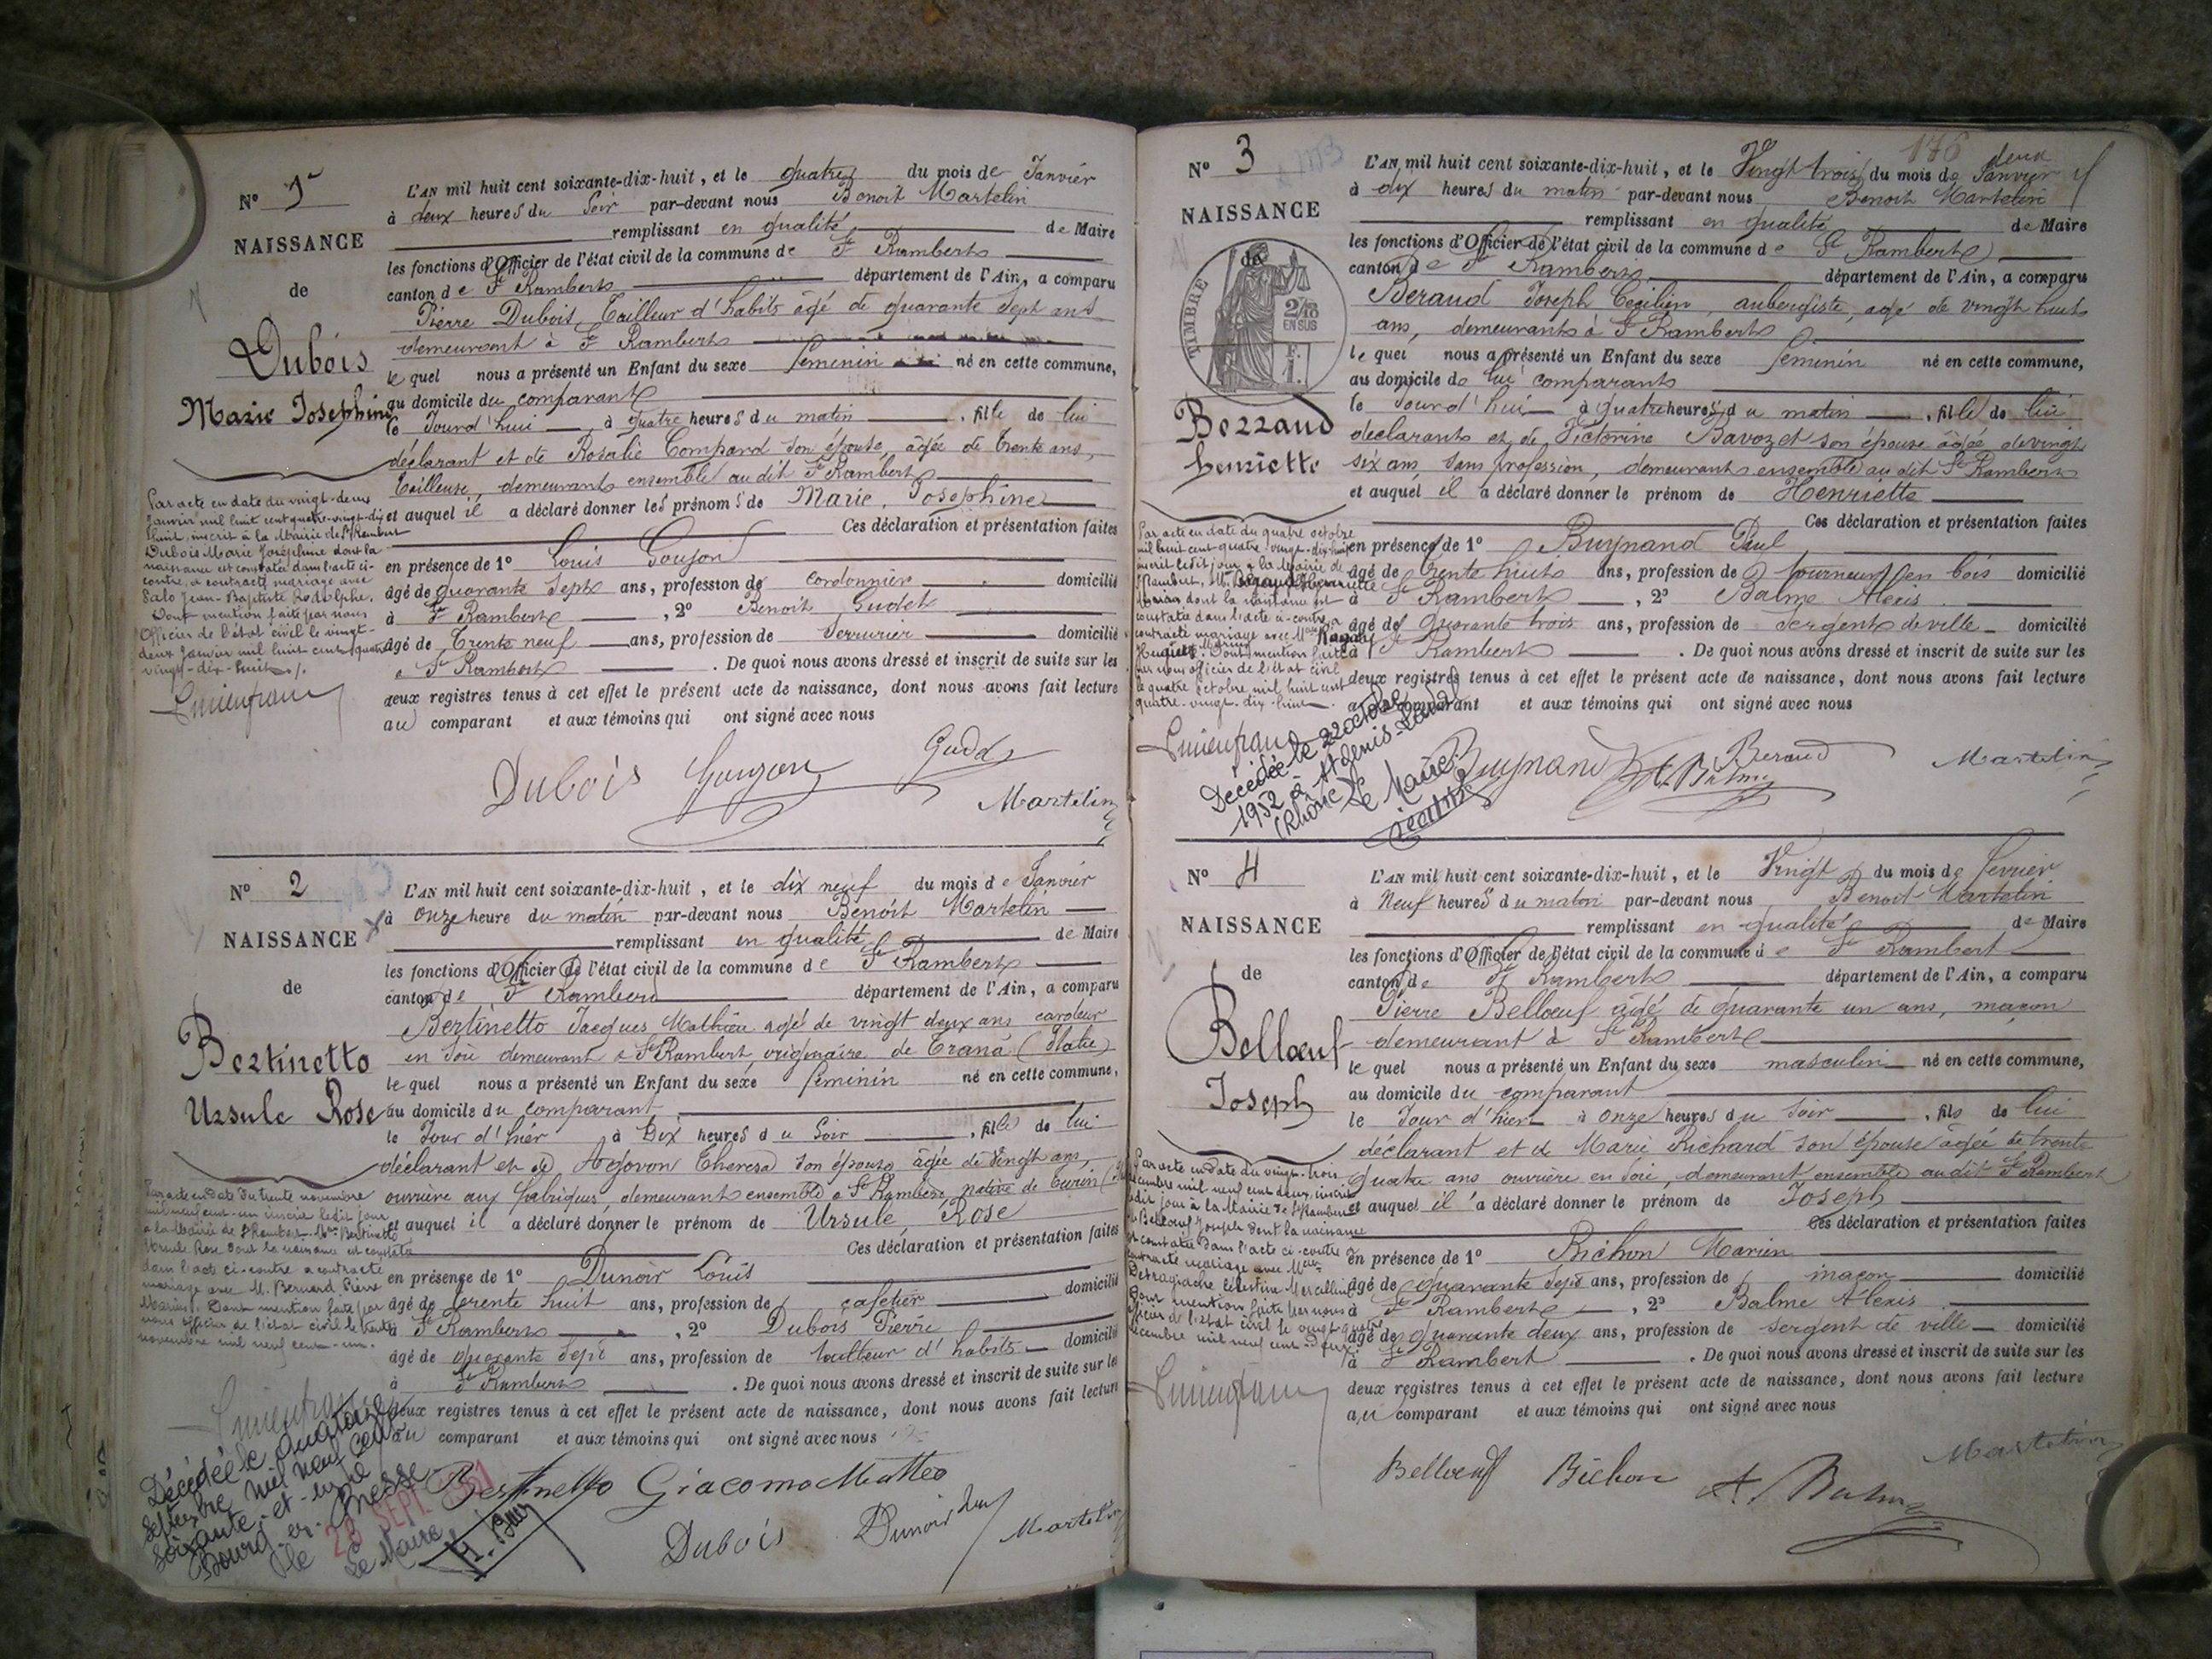 N° 1
NAISSANCE
de
Dubois
Marie Josephine
Par acte en date du vingt-deux
Janvier mil huit cent quatre-vingt-dix
huit, inscrit à la Mairie de St Rambert
Dubois Marie Joséphine dont la
naissance est constatée dans l'acte ci-
contre, a contracté mariage avec
Salo Jean-Baptiste Rodolphe.
Dont mention faite par nous
Officier de l'état civil le vingt-
deux Janvier mil huit cent quatre
vingt-dix-huit
L'AN mil huit cent soixante-dix-huit, et le quatre du mois de Janvier
à deux heures du Soir par-devant nous Benoit Martelin
remplissant en qualité de Maire
les fonctions d'Officier de l'état civil de la commune de St Rambert
canton de St Rambert département de l'Ain, a comparu
Pierre Dubois Tailleur d'habits âgé de quarante Sept ans
demeurant à St Rambert
le quel nous a présenté un Enfant du sexe féminin né en cette commune,
au domicile du comparant
le Jourd'hui à quatre heures du matin, fille de lui
déclarant et de Rosalie Compard son épouse, âgée de trente ans,
Tailleuse, demeurant ensemble au dit St Rambert
et auquel il a déclaré donner les prénoms de Marie, Josephine
Ces déclaration et présentation faites
en présence de 1° Louis Goujon
âgé de quarante Sept ans, profession de cordonnier domicilié
à St Rambert, 2° Benoit Gudet
âgé de Trente neuf ans, profession de Serrurier domicilié
à St Rambert. De quoi nous avons dressé et inscrit de suite sur les
deux registres tenus à cet effet le présent acte de naissance, dont nous avons fait lecture
au comparant et aux témoins qui ont signé avec nous
Dubois Goujon Gudet
Martelin
N° 2
NAISSANCE
de
Bertinetto
Ursule Rose
Par acte en date du trente novembre
mil neuf cent-un inscrit ledit jour
à la Mairie de St Rambert, Mlle Bertinetto
Ursule Rose dont la naissance est constatée
dans l'acte ci-contre a contracté
mariage avec M. Bernard Pierre
Marius. Dont mention faite par
nous officier de l'état civil le trente
novembre mil neuf cent-un.
Décédée le quatorze
Septembre mil neuf cent
soixante-et-un
Bourg-en-Bresse
le 28 SEPT 1961
Le Maire
L'AN mil huit cent soixante-dix-huit, et le dix neuf du mois de Janvier
à onze heure du matin par-devant nous Benoit Martelin
remplissant en qualité de Maire
les fonctions d'Officier de l'état civil de la commune de St Rambert
canton de St Rambert département de l'Ain, a comparu
Bertinetto Jacques Mathieu agé de vingt deux ans cardeur
en soie demeurant à St Rambert originaire de Trana (Italie)
le quel nous a présenté un Enfant du sexe féminin né en cette commune,
au domicile du comparant
le Jour d'hier à Dix heures du Soir, fille de lui
déclarant et de Agovon Theresa son épouse âgée de Vingt ans,
ouvrière aux fabriques demeurant ensemble à St Rambert, native de Turin
et auquel il a déclaré donner le prénom de Ursule, Rose
Ces déclaration et présentation faites
en présence de 1° Dunoir Louis
âgé de trente huit ans, profession de cafetier domicilié
à St Rambert, 2° Dubois Pierre
âgé de quarante sept ans, profession de tailleur d'habits domicilié
à St Rambert. De quoi nous avons dressé et inscrit de suite sur les
deux registres tenus à cet effet le présent acte de naissance, dont nous avons fait lecture
au comparant et aux témoins qui ont signé avec nous
Bertinetto Giacomo Matteo
Dubois Dunoir Martelin
176
N° 3
NAISSANCE
de
TIMBRE
2/10
EN SUS
Berraud
henriette
Par acte en date du quatre octobre
mil huit cent quatre-vingt-dix-huit
inscrit ledit jour à la Mairie de
St Rambert,
dont la naissance est
constatée dans l'acte ci-contre a
contracté mariage avec
Dont mention faite
par nous officier de l'état civil
le quatre octobre mil huit cent
quatre-vingt-dix-huit.
Décédée le 22 octobre
1952 à St Genis-Laval
(Rhône)
Le Maire
L'AN mil huit cent soixante-dix-huit, et le Vingt trois du mois de Janvier
à dix heures du matin par-devant nous Benoit Martelin
remplissant en qualité de Maire
les fonctions d'Officier de l'état civil de la commune de St Rambert
canton de St Rambert département de l'Ain, a comparu
Beraud Joseph Cecilien, aubergiste, agé de vingt huit
ans, demeurant à St Rambert
le quel nous a présenté un Enfant du sexe féminin né en cette commune,
au domicile de lui comparant
le Jourd'hui à quatre heures du matin, fille de lui
déclarant et de Victorine Bavozet son épouse âgée de vingt
six ans, sans profession, demeurant ensemble au dit St Rambert
et auquel il a déclaré donner le prénom de Henriette
Ces déclaration et présentation faites
en présence de 1° Buynand Paul
âgé de trente huit ans, profession de tourneur en bois domicilié
à St Rambert, 2° Balme Alexis
âgé de quarante trois ans, profession de Sergent de ville domicilié
à St Rambert. De quoi nous avons dressé et inscrit de suite sur les
deux registres tenus à cet effet le présent acte de naissance, dont nous avons fait lecture
au comparant et aux témoins qui ont signé avec nous
Buynand A. Balme Beraud Martelin
N° 4
NAISSANCE
de
Belloeuf
Joseph
Par acte en date du vingt-trois
décembre mil neuf cent deux, inscrit
ledit jour à la Mairie de St Rambert
Belloeuf Joseph dont la naissance
est constatée dans l'acte ci-contre a
contracté mariage avec Mlle
Célestine Marcelline
Dont mention faite par nous
officier de l'état civil le vingt-quatre
décembre mil neuf cent deux
L'AN mil huit cent soixante-dix-huit, et le Vingt du mois de février
à Neuf heures du matin par-devant nous Benoit Martelin
remplissant en qualité de Maire
les fonctions d'Officier de l'état civil de la commune de St Rambert
canton de St Rambert département de l'Ain, a comparu
Pierre Belloeuf âgé de quarante un ans, maçon
demeurant à St Rambert
le quel nous a présenté un Enfant du sexe masculin né en cette commune,
au domicile du comparant
le Jour d'hier à onze heures du Soir, fils de lui
déclarant et de Marie Richard son épouse âgée de trente
quatre ans ouvrière en soie, demeurant ensemble au dit St Rambert
et auquel il a déclaré donner le prénom de Joseph
Ces déclaration et présentation faites
en présence de 1° Bichon Marien
âgé de quarante sept ans, profession de maçon domicilié
à St Rambert, 2° Balme Alexis
âgé de quarante deux ans, profession de sergent de ville domicilié
à St Rambert. De quoi nous avons dressé et inscrit de suite sur les
deux registres tenus à cet effet le présent acte de naissance, dont nous avons fait lecture
au comparant et aux témoins qui ont signé avec nous
Belloeuf Bichon A. Balme Martelin